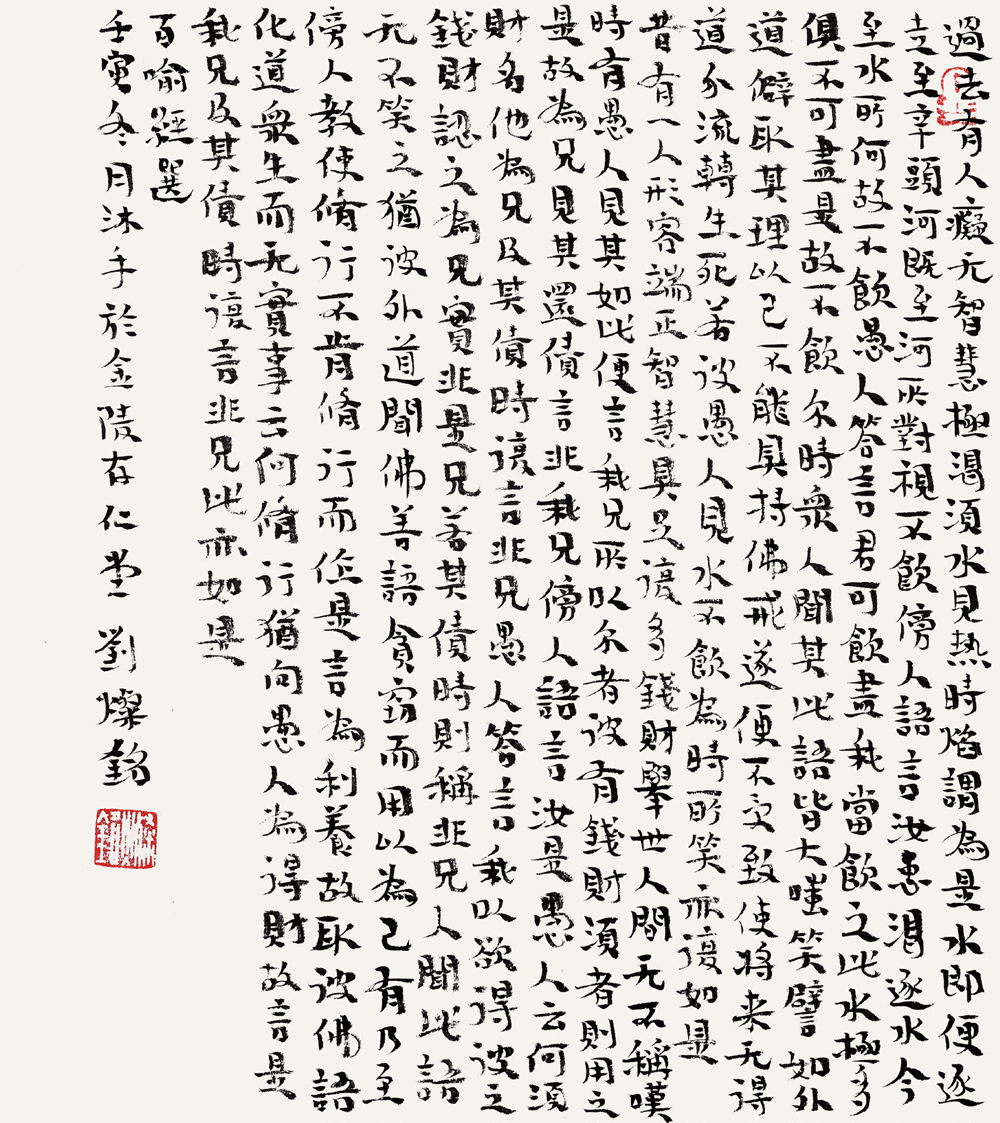 過去有人癡无智慧極渴須水見热時焰謂為是水即便逐
走至辛頭河既至河所對視不飲傍人語言汝患渴逐水今
至水所何故不飲愚人答言君可飲盡我當飲之此水極多
俱不可盡是故不飲尔時衆人聞其此語皆大嗤笑譬如外
道僻取其理以己不能具持佛戒遂便不受致使將来无得
道分流轉生死若彼愚人見水不飲為時所笑亦復如是
昔有一人形容端正智慧具足復多錢財舉世人間无不稱嘆
時有愚人見其如此便言我兄所以尔者彼有錢財須者則用之
是故為兄見其還債言非我兄傍人語言汝是愚人云何須
財名他為兄及其債時復言非兄愚人答言我以欲得彼之
錢財認之為兄實非是兄若其債時則稱非兄人聞此語
无不笑之猶彼外道聞佛善語貪窃而用以為己有乃至
傍人教使脩行不肯脩行而作是言為利養故取彼佛語
化道衆生而无實事云何脩行猶向愚人為得財故言是
我兄及其債時復言非兄此亦如是
百喻經選
壬寅冬月沐手於金陵存仁堂 劉燦銘